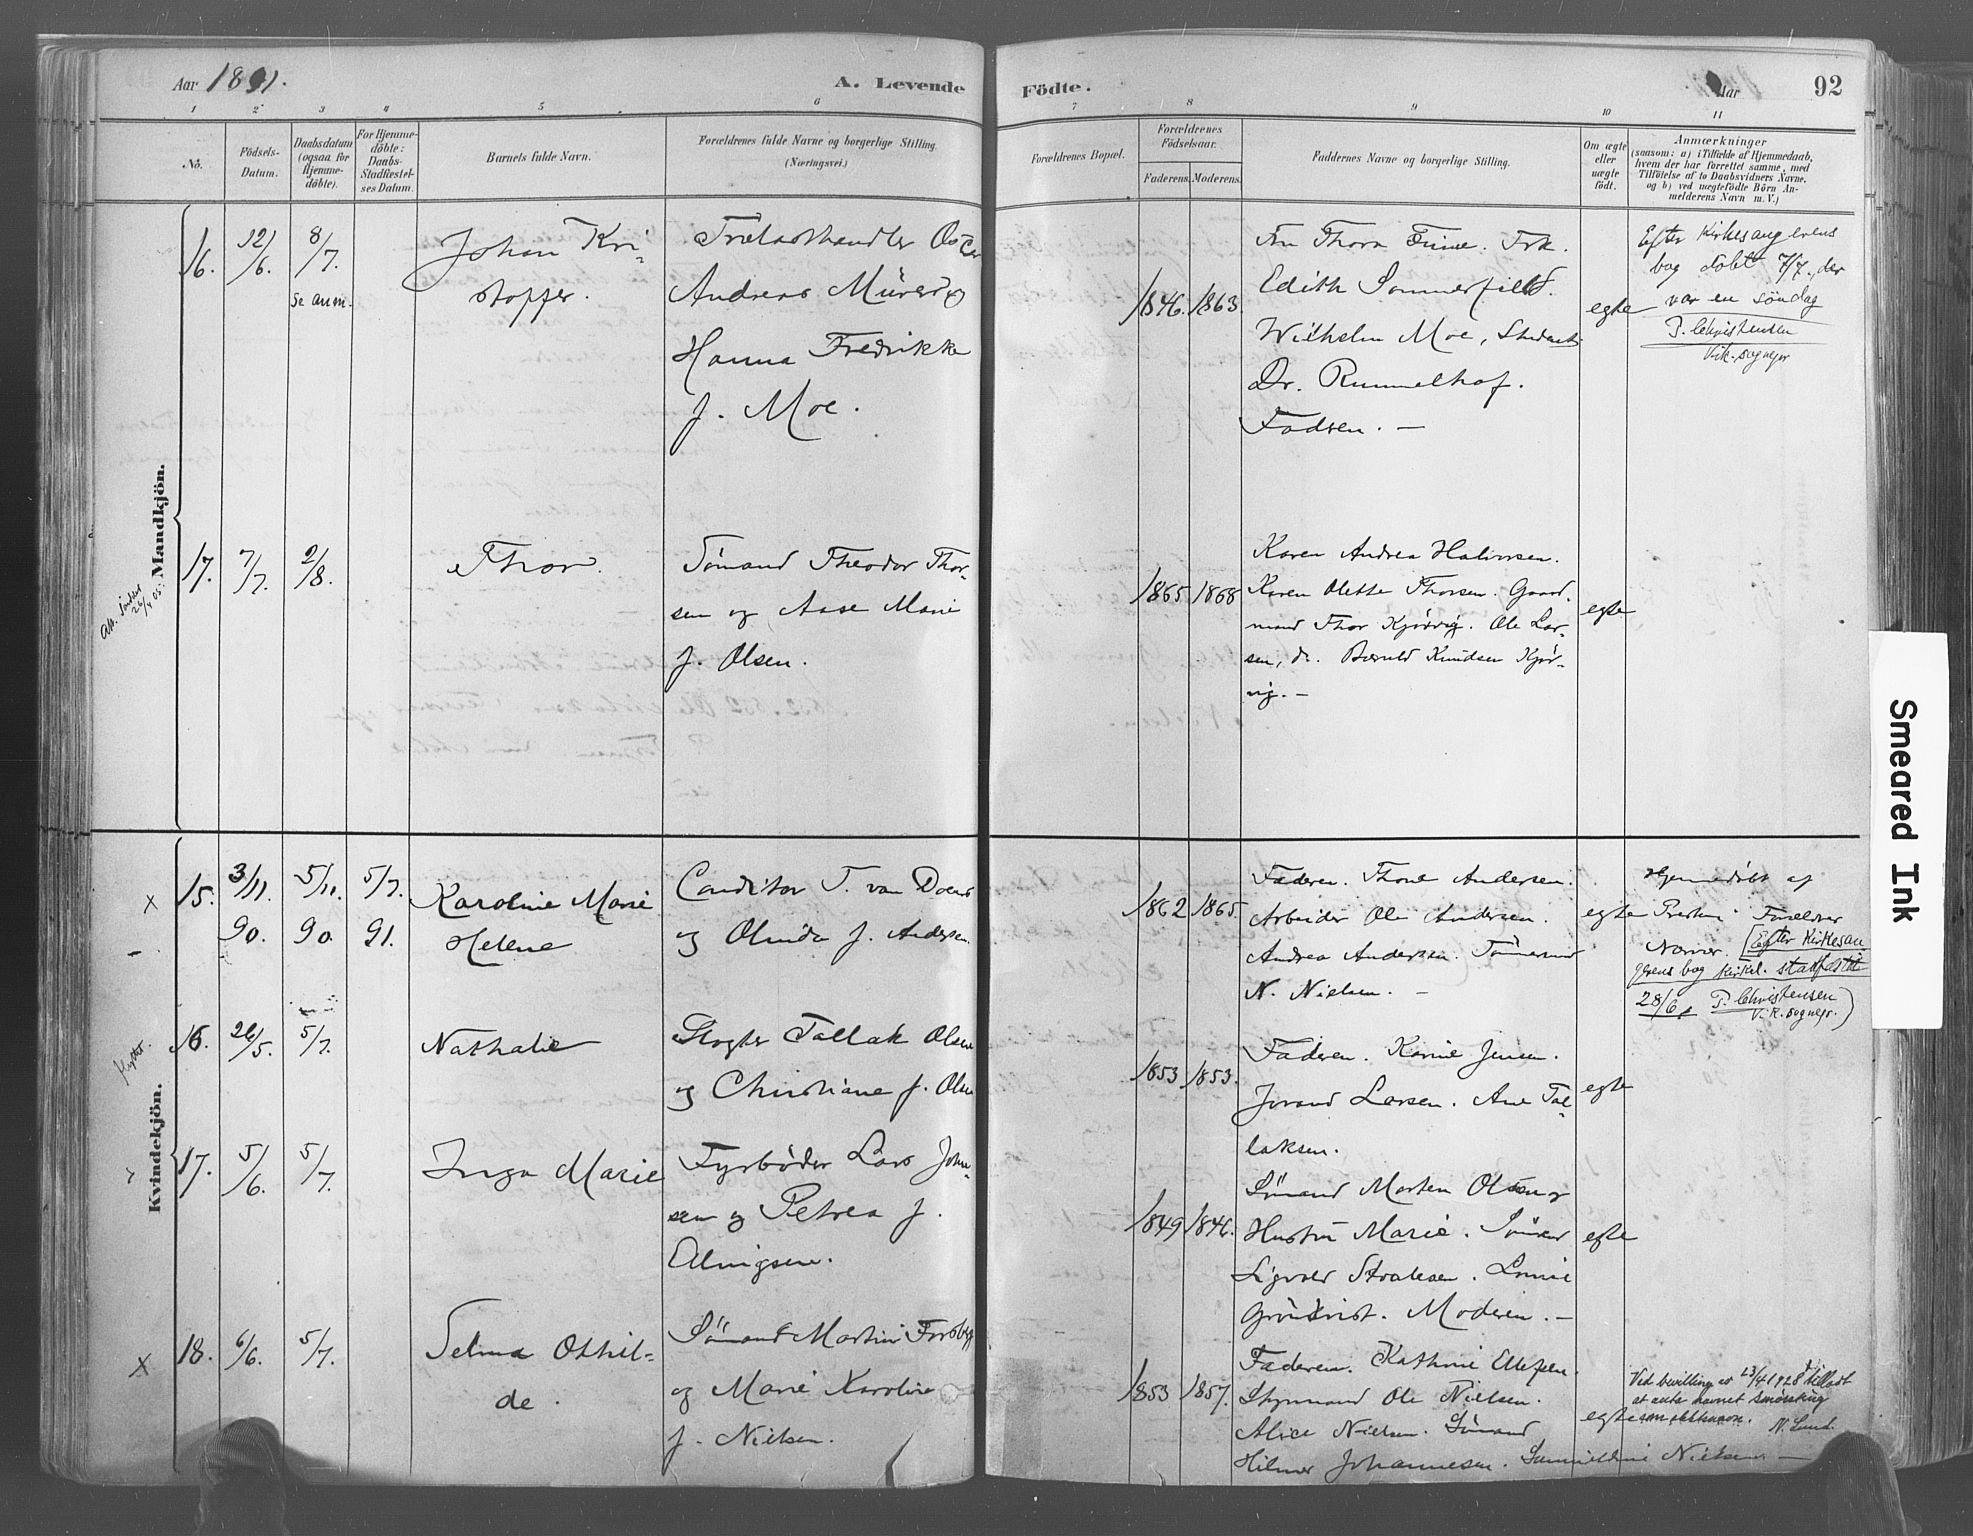 Aar 1891.
A. Levende Födte.
Aar
92
1 2 3 4 5 6 7 8 9 10 11
No.
Födsels-
Datum.
Daabsdatum
(ogsaa for
Hjemme-
döbte).
For Hjemme-
döbte:
Daabs-
Stadfæstel-
ses Datum.
Barnets fulde Navn.
Forældrenes fulde Navne og borgerlige Stilling.
(Næringsvei.)
Forældrenes Bopæl.
Forældrenes
Födselsaar.
Faderens. Moderens.
Faddernes Navne og borgerlige Stilling.
Om ægte
eller
uægte
födt.
Anmærkninger
(saasom: a) i Tilfælde af Hjemmedaab,
hvem der har forrettet samme, med
Tilföielse af to Daabsvidners Navne.
og b) ved uægtefödte Börn An-
melderens Navn m. V.)
Mandkjön.
16.
12/6.
8/7.
se anm.
Johan Kri-
stoffer.
Trælasthandler
Andreas
Hanna Fredrikke
f. Moe.
1846. 1863.
Fru Thora Frk.
Edith Sommerfield.
Wilhelm Moe, Student
Dr. Rummelhof.
Faderen. —
egte
Efter Kirkesangerens
bog döbt 7/7, der
var en söndag
P. Christensen
Vik. sognepr
17.
7/7.
2/8.
Thor.
Sömand Theodor Thor-
sen og Aase Marie
f. Olsen.
1865 1868
Karen Andrea Halvorsen.
Karen Olette Thorsen. Gaard-
mand Thor Kjörvig. Ole Lar-
sen, do. Knudsen Kjör-
vig. —
egte
Att. sendt
26/4 05.
Kvindekjön.
X
15.
3/11
90.
5/11.
90.
5/7.
91.
Karoline Marie
Helene
Conditor T. van
og f. Andersen
1862 1865.
Faderen. Andersen.
Arbeider Ole Andersen.
Andrea Andersen. Tömmermd
N. Nielsen. —
egte
Hjemmedöbt af
Presten. Forældrer
[Efter Kirkesan
gerens bog kirkel. stadfæstet
28/6, P. Christensen
V. K. sognepr.)
16.
26/5.
5/7.
Nathalie
Slagter Tallak Olsen
og Christiane f. Olsen
1853 1853.
Faderen. Karine Jensen.
Larsen. Ane Tal-
laksen.
egte
17.
5/6.
5/7.
Inga Marie
Fyrbøder Lars John-
sen og Petrea f.
1849 1846.
Sömand Morten Olsen og
Hustru Marie.
Moderen. —
egte
X
18.
6/6.
5/7.
Selma Othil-
de.
Sömand Martin
og Marie Karoline
f. Nielsen.
1853 1857.
Faderen. Kathrine Ellefsen.
Styrmand Ole Nielsen.
Alice Nielsen. Sömand
Hilmer Johannesen. Nielsen —
egte
Ved bevilling av 23/4 1928 tilladt
at anta navnet
som N. Lund.
Smeared Ink